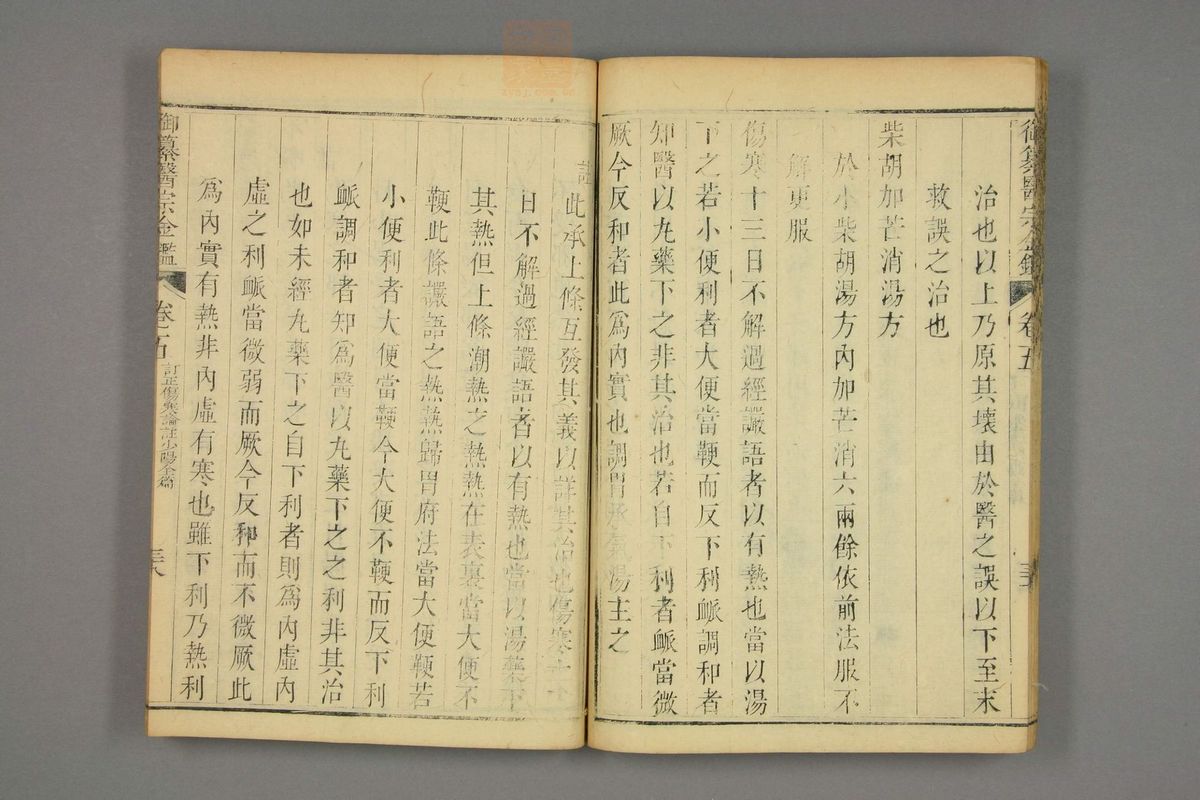 御纂醫宗金鑑 卷五
治也以上乃原其壞由於醫之誤以下至末
救誤之治也
柴胡加芒消湯方
於小柴胡湯方內加芒消六兩餘依前法服不
解更服
傷寒十三日不解過經讝語者以有熱也當以湯
下之若小便利者大便當鞕而反下利脈調和者
知醫以丸藥下之非其治也若自下利者脈當微
厥今反和者此爲內實也調胃承氣湯主之
註
此承上條互發其義以詳其治也傷寒十三
日不解過經讝語者以有熱也當以湯藥下
其熱但上條潮熱之熱熱在表裏當大便不
鞕此條讝語之熱熱歸胃府法當大便鞕若
小便利者大便當鞕今大便不鞕而反下利
脈調和者知爲醫以丸藥下之之利非其治
也如未經丸藥下之自下利者則爲內虛內
虛之利脈當微弱而厥今反和而不微厥此
爲內實有熱非內虛有寒也雖下利乃熱利
御纂醫宗金鑑 卷之五 訂正傷寒論註少陽全篇 三八